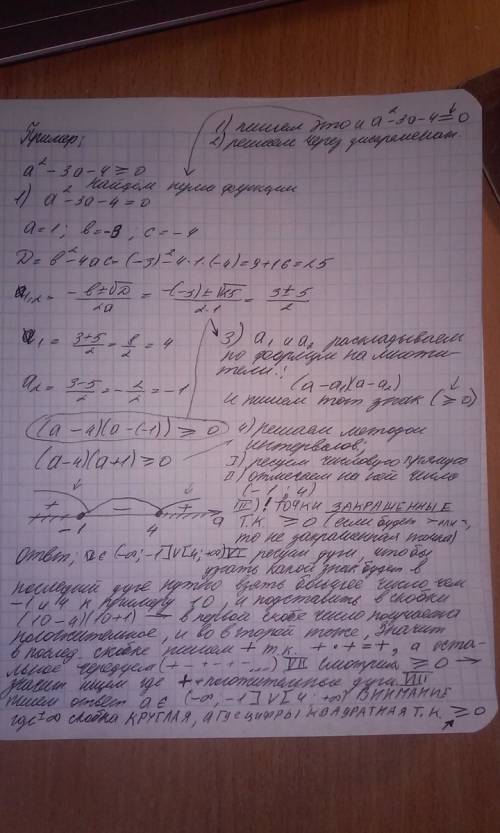 Пример:
1) пишем это и a² - 3a - 4 = 0
2) решаем через дискриминант.
a² - 3a - 4 ≥ 0
найдём нули функции
1) a² - 3a - 4 = 0
a = 1; b = -3; c = -4
D = b² - 4ac = (-3)² - 4·1·(-4) = 9 + 16 = 25
a₁,₂ = (-b ± √D)/2a = (-(-3) ± √25)/2·1 = (3 ± 5)/2
a₁ = (3+5)/2 = 8/2 = 4
a₂ = (3-5)/2 = -2/2 = -1
3) a₁ и a₂ раскладываем
по формуле на множи-
тели:
(a - a₁)(a - a₂)
и пишем тот знак (≥ 0)
(a - 4)(a - (-1)) ≥ 0
(a - 4)(a + 1) ≥ 0
4) решаем методом
интервалов;
I) рисуем числовую прямую
II) отмечаем на ней числа
(-1 и 4)
III)! точки ЗАКРАШЕННЫЕ
т.к. ≥ 0 (если будет > или <,
то не закрашенная точка)
+ - +
-1 4 a
Ответ: a ∈ (-∞; -1] ∪ [4; +∞)
VI рисуем дуги, чтобы
узнать какой знак будет в
последней дуге нужно взять большее число чем
-1 и 4 к примеру 10, и подставить в скобки
(10-4)(10+1) в первой скобе число получается
положительное, и во второй тоже, значит
в послед. скобке пишем + т.к. + · + = +, а оста-
льное чередуем (+ - + - + - ...) VII смотрим ≥ 0 →
значит ищем где + положительные дуги. VIII
пишем ответ a ∈ (-∞; -1] ∪ [4; +∞) ВНИМАНИЕ
где ±∞ скобка КРУГЛАЯ, А ГДЕ ЦИФРЫ КВАДРАТНАЯ т.к. ≥ 0